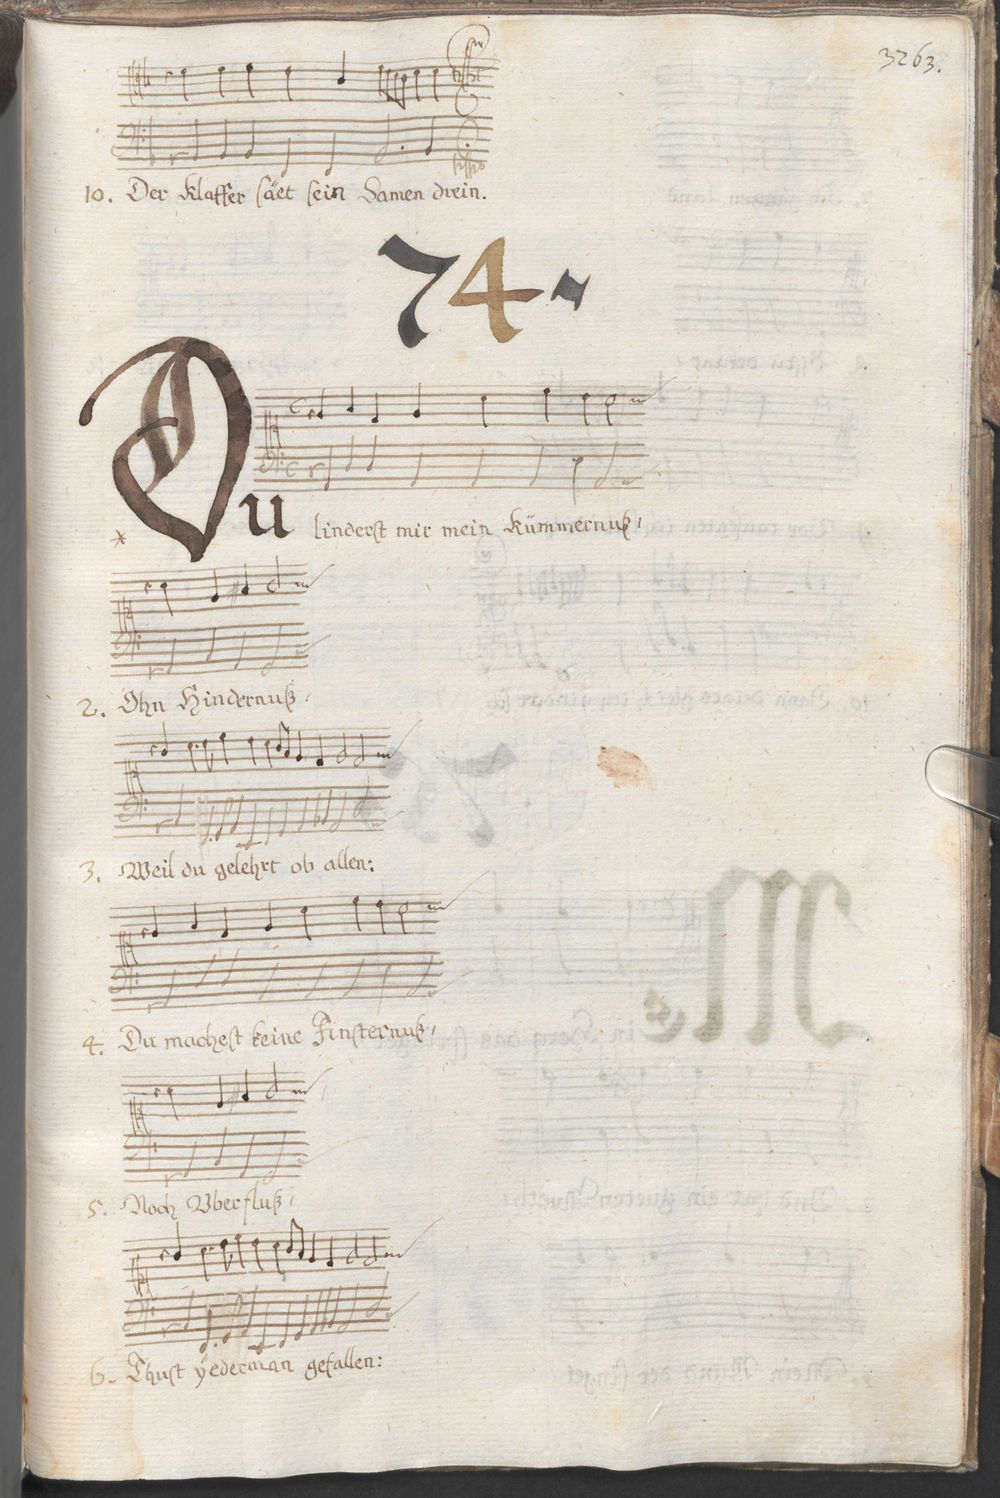 3263.
10. Der Klaffer säet sein Samen drein.
74.
Du linderst mir mein Kümmernuß,
2. Ohn Hindernuß,
3. Weil du gelehrt ob allen:
4. Du machest keine Finsternuß,
5. Noch Vberfluß,
6. Thust ÿederman gefallen: